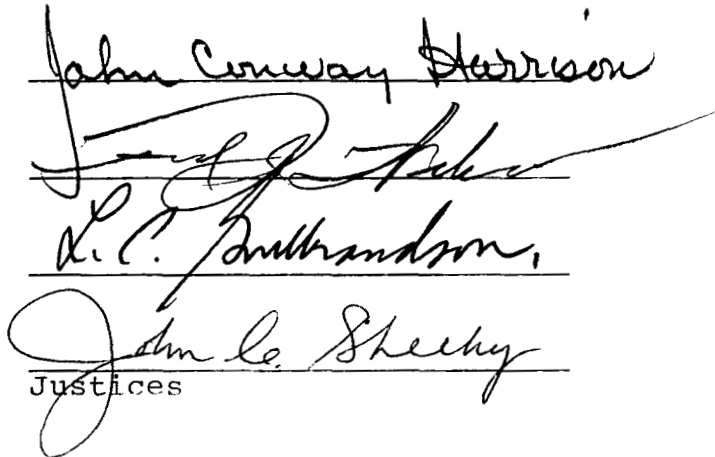 John Conway Harrison
Fred J. Weber
L. C. Gulbrandson,
John C. Sheehy
Justices